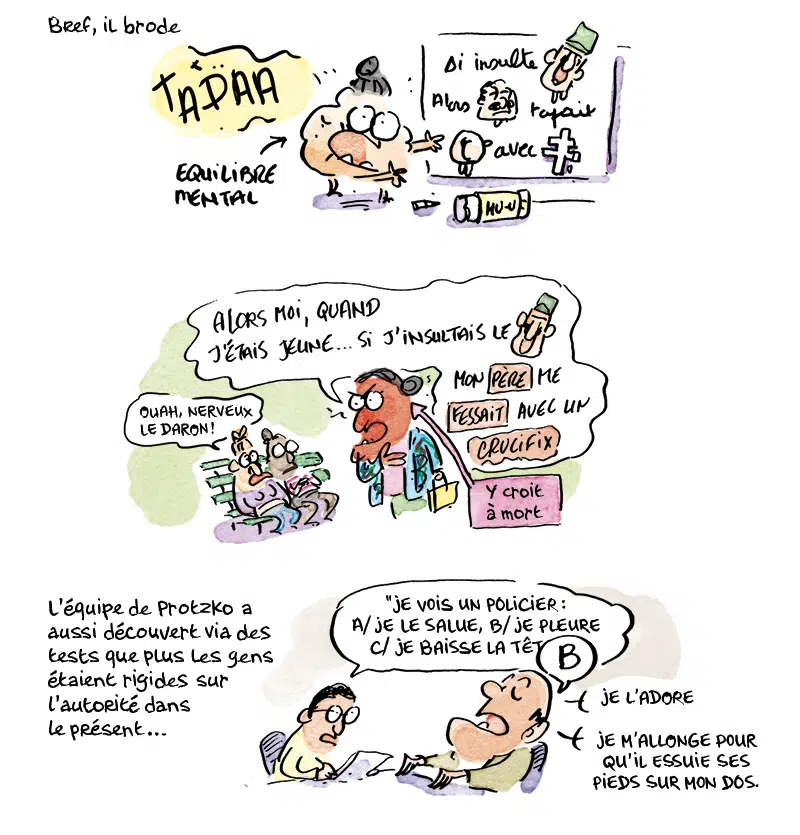 Bref, il brode
TADAA
EQUILIBRE
MENTAL
Si insulte
Alors
tapait
avec
HU-U
ALORS MOI, QUAND
J'ÉTAIS JEUNE... SI J'INSULTAIS LE
MON PÈRE ME
FESSAIT AVEC UN
CRUCIFIX
OUAH, NERVEUX
LE DARON!
Y croit
à mort
L'équipe de Protzko a
aussi découvert via des
tests que plus les gens
étaient rigides sur
l'autorité dans
le présent...
"JE VOIS UN POLICIER:
A/ JE LE SALUE, B/ JE PLEURE
C/ JE BAISSE LA TÊT
B
JE L'ADORE
JE M'ALLONGE POUR
QU'IL ESSUIE SES
PIEDS SUR MON DOS.